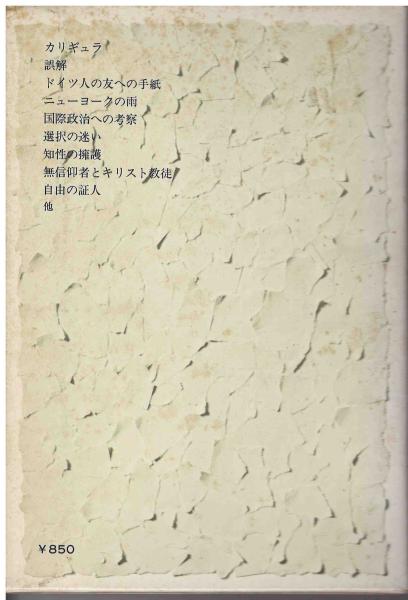 カリギュラ
誤解
ドイツ人の友への手紙
ニューヨークの雨
国際政治への考察
選択の迷い
知性の擁護
無信仰者とキリスト教徒
自由の証人
他
¥850